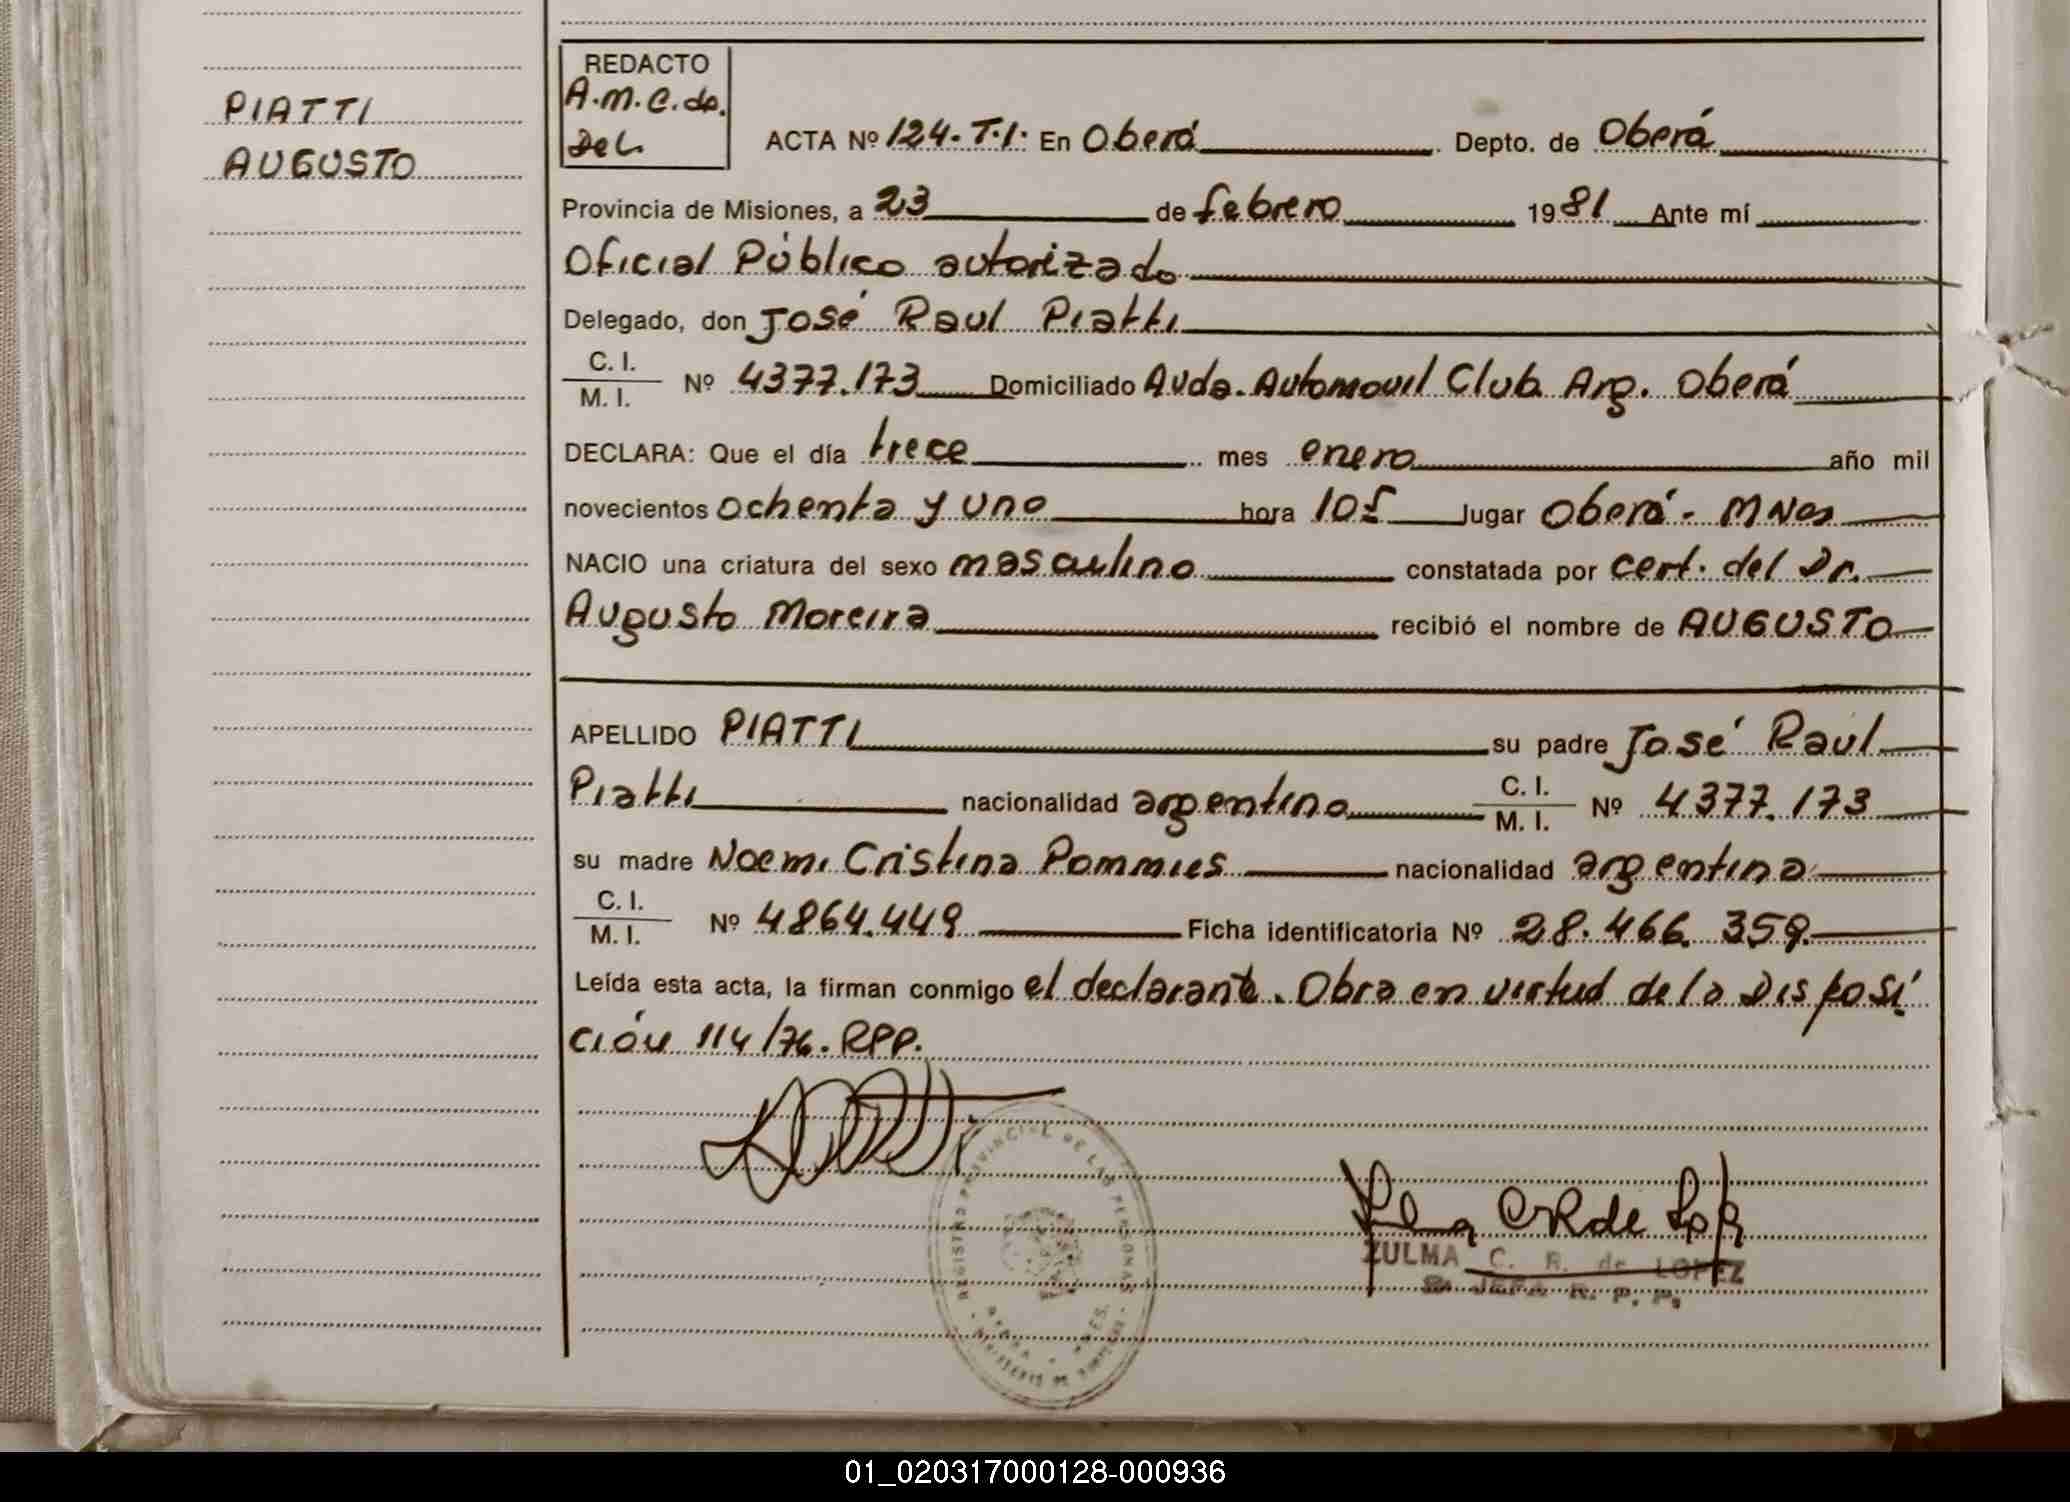 PIATTI
AUGUSTO
REDACTO
A.M.C. de.
Del.
ACTA Nº 124-T.1: En Oberá Depto. de Oberá
Provincia de Misiones, a 23 de febrero 1981 Ante mí
Oficial Público autorizado
Delegado, don José Raul Piatti
C. I.
M. I. Nº 4377.173 Domiciliado Avda. Automovil Club Arg. Oberá
DECLARA: Que el día trece mes enero año mil
novecientos ochenta y uno hora 10 lugar Oberá - MNes
NACIO una criatura del sexo masculino constatada por cert. del Dr.
Augusto Moreira recibió el nombre de AUGUSTO
APELLIDO PIATTI su padre José Raúl
Piatti nacionalidad argentino C. I. M. I. Nº 4377.173
su madre Noemi Cristina Pommies nacionalidad argentina
C. I.
M. I. Nº 4864.449 Ficha identificatoria Nº 28.466.359.
Leída esta acta, la firman conmigo el declarante. Obra en virtud de la Disposi
ción 114/76. RPP.
REGISTRO PROVINCIAL DE LAS PERSONAS
ZULMA C. R. de LOPEZ
JEFA R. P. P.
01_020317000128-000936